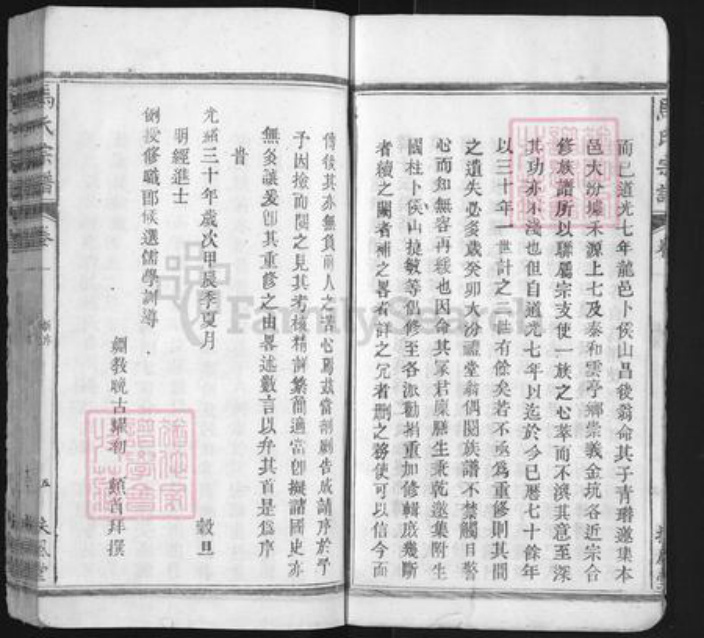 而已道光七年龍邑卜侯山昌後翁命其子青瓚邀集本
邑大汾墟禾源上七及泰和雲亭鄉崇義金坑各近宗合
修族譜所以聯屬宗支使一族之心萃而不渙其意至深
其功亦不淺也但自道光七年以迄於今已曆七十餘年
以三十年一世計之二世有餘矣若不亟爲重修則其間
之遺失必多歲癸卯大汾禮堂翁偶閱族譜不禁觸目警
心而知無容再緩也因命其冢君廩膳生秉乾邀集附生
國柱卜侯山捷敏等倡修至各派勸捐重加修輯庶幾斷
者續之闕者補之畧者詳之冗者刪之務使可以信今而
傳後其亦無負前人之苦心焉茲當剞劂告成請序於予
予因撿而閱之見其考核精詳繁簡適當卽擬諸國史亦
無多讓爰卽其重修之由畧述數言以弁其首是爲序
旹
光緒三十年歲次甲辰季夏月 穀旦
明經進士
例授修職郎候選儒學訓導
劉教晚古耀初 頓首拜撰
馬氏宗譜 卷
五 扶風堂
FamilySearch